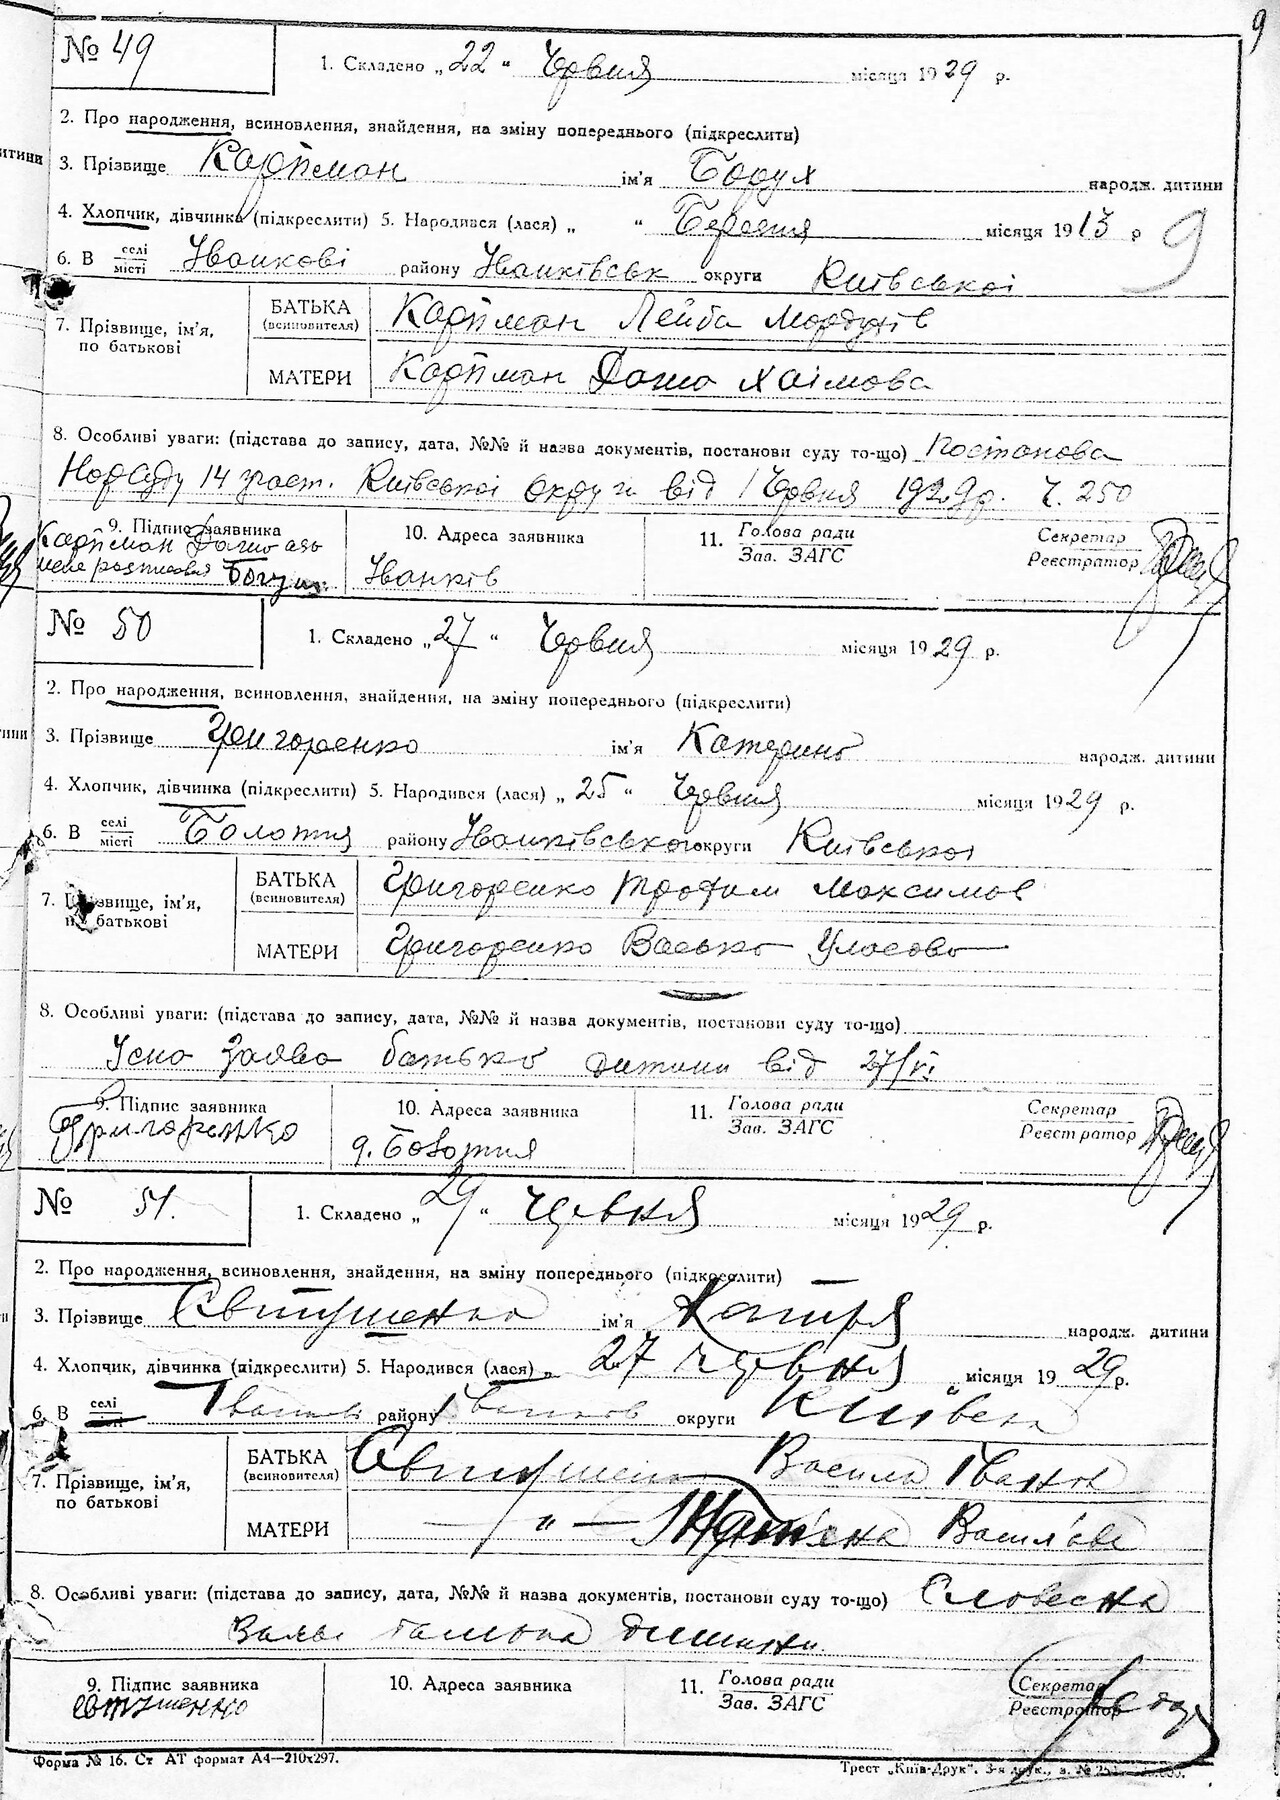 9
№ 49
1. Складено „22“ Червня місяця 1929 р.
2. Про народження, всиновлення, знайдення, на зміну попереднього (підкреслити)
итини
3. Прізвище Карпман ім'я Борух народж. дитини
4. Хлопчик, дівчинка (підкреслити) 5. Народився (лася) „ “ Березня місяця 1913 р
9
6. В селі місті Іванкові району Іванківськ округи Київської
7. Прізвище, ім'я, по батькові
БАТЬКА (всиновителя) Карпман Лейба Мордухів
МАТЕРИ Карпман Даша Хаімова
8. Особливі уваги: (підстава до запису, дата, №№ й назва документів, постанови суду то-що) Постанова
Нарсуду 14 участ. Київської округи від 1 Червня 1929 р. Ч. 250
9. Підпис заявника
Карпман Даша або
10. Адреса заявника
Іванків
11. Голова ради Зав. ЗАГС
Секретар Реєстратор
№ 50
1. Складено „27“ Червня місяця 1929 р.
2. Про народження, всиновлення, знайдення, на зміну попереднього (підкреслити)
3. Прізвище Григоренко ім'я Катерина народж. дитини
4. Хлопчик, дівчинка (підкреслити) 5. Народився (лася) „25“ Червня місяця 1929 р.
6. В селі місті Болотня району Іванківського округи Київської
7. Прізвище, ім'я, по батькові
БАТЬКА (всиновителя) Григоренко Трофим Максимов
МАТЕРИ Григоренко Васька Уласова
8. Особливі уваги: (підстава до запису, дата, №№ й назва документів, постанови суду то-що)
Усна Заява батька дитини від 27/VI
9. Підпис заявника
Григоренко
10. Адреса заявника
11. Голова ради Зав. ЗАГС
Секретар Реєстратор
№ 51.
1. Складено „29“ червня місяця 1929 р.
2. Про народження, всиновлення, знайдення, на зміну попереднього (підкреслити)
3. Прізвище Євтушенко ім'я Катря народж. дитини
4. Хлопчик, дівчинка (підкреслити) 5. Народився (лася) „ 27 червня місяця 1929 р.
6. В селі району округи
7. Прізвище, ім'я, по батькові
БАТЬКА (всиновителя) Євтушенко Василь Іванов
МАТЕРИ — „ —
8. Особливі уваги: (підстава до запису, дата, №№ й назва документів, постанови суду то-що) Словесна
Заява батька дитини.
9. Підпис заявника
Євтушенко
10. Адреса заявника
11. Голова ради Зав. ЗАГС
Секретар Реєстратор
Форма № 16. Ст АТ формат А4—210х297.
Трест „Київ-Друк“. 3-я друк., з. №